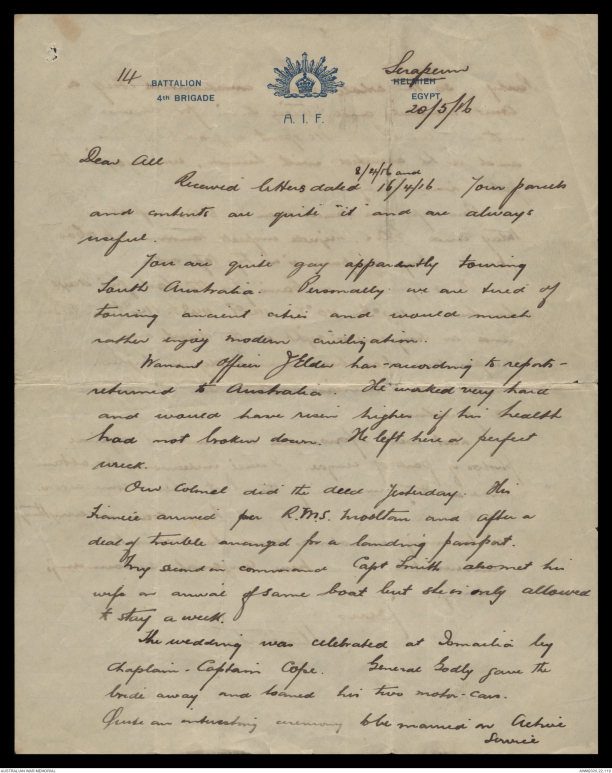 14 BATTALION
4th BRIGADE
A. I. F.
Serapeum
HELMIEH
EGYPT
20/5/16
Dear All
8/4/16 and
Received letters dated 16/4/16 Your parcels
and contents are quite "it" and are always
useful.
You are quite gay apparently touring
South Australia. Personally we are tired of
touring ancient cities and would much
rather enjoy modern civilization.
Warrant Officer J Elder has - according to reports -
returned to Australia. He worked very hard
and would have risen higher if his health
had not broken down. He left here a perfect
wreck.
Our Colonel did the deed yesterday. His
Fiancee arrived per R.M.S. Mooltan and after a
deal of trouble arranged for a landing passport.
My second in command Capt Smith also met his
wife on arrival of same boat but she is only allowed
to stay a week.
The wedding was celebrated at Ismailia by
Chaplain-Captain Cope. General Godly gave the
bride away and loaned his two motor-cars.
Quite an interesting ceremony to be married on Active
Service
AUSTRALIAN WAR MEMORIAL